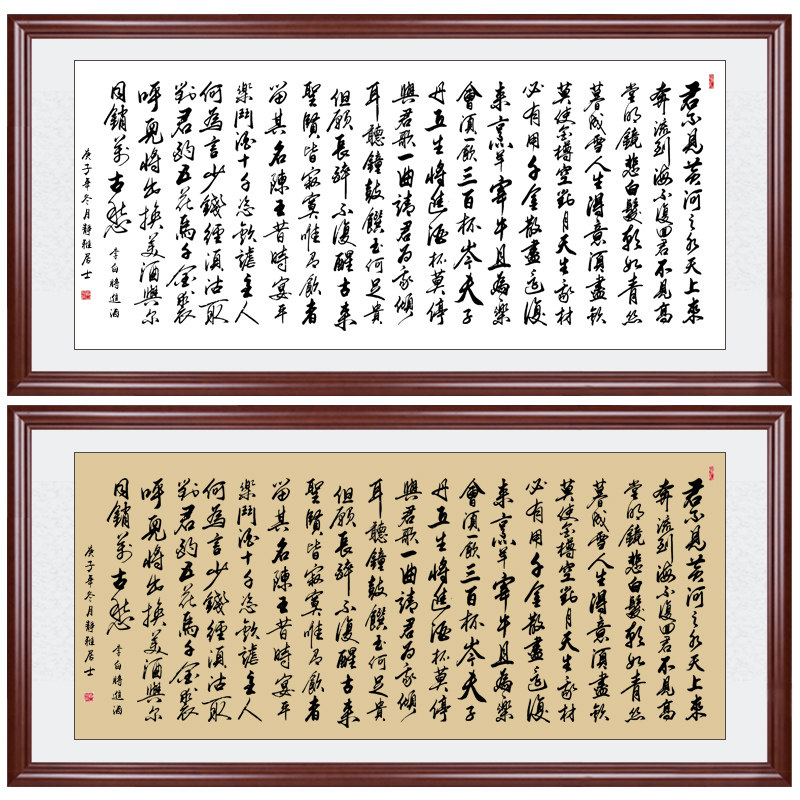 君不見黃河之水天上來
奔流到海不復回君不見高
堂明鏡悲白髮朝如青絲
暮成雪人生得意須盡歡
莫使金樽空對月天生我材
必有用千金散盡還復
來烹羊宰牛且為樂
會須一飲三百杯岑夫子
丹丘生將進酒杯莫停
與君歌一曲請君為我傾
耳聽鐘鼓饌玉何足貴
但願長醉不復醒古來
聖賢皆寂寞唯有飲者
留其名陳王昔時宴平
樂鬥酒十千恣歡謔主人
何為言少錢徑須沽取
對君酌五花馬千金裘
呼兒將出換美酒與爾
同銷萬古愁
李白將進酒
庚子年冬月靜雅居士
君不見黃河之水天上來
奔流到海不復回君不見高
堂明鏡悲白髮朝如青絲
暮成雪人生得意須盡歡
莫使金樽空對月天生我材
必有用千金散盡還復
來烹羊宰牛且為樂
會須一飲三百杯岑夫子
丹丘生將進酒杯莫停
與君歌一曲請君為我傾
耳聽鐘鼓饌玉何足貴
但願長醉不復醒古來
聖賢皆寂寞唯有飲者
留其名陳王昔時宴平
樂鬥酒十千恣歡謔主人
何為言少錢徑須沽取
對君酌五花馬千金裘
呼兒將出換美酒與爾
同銷萬古愁
李白將進酒
庚子年冬月靜雅居士